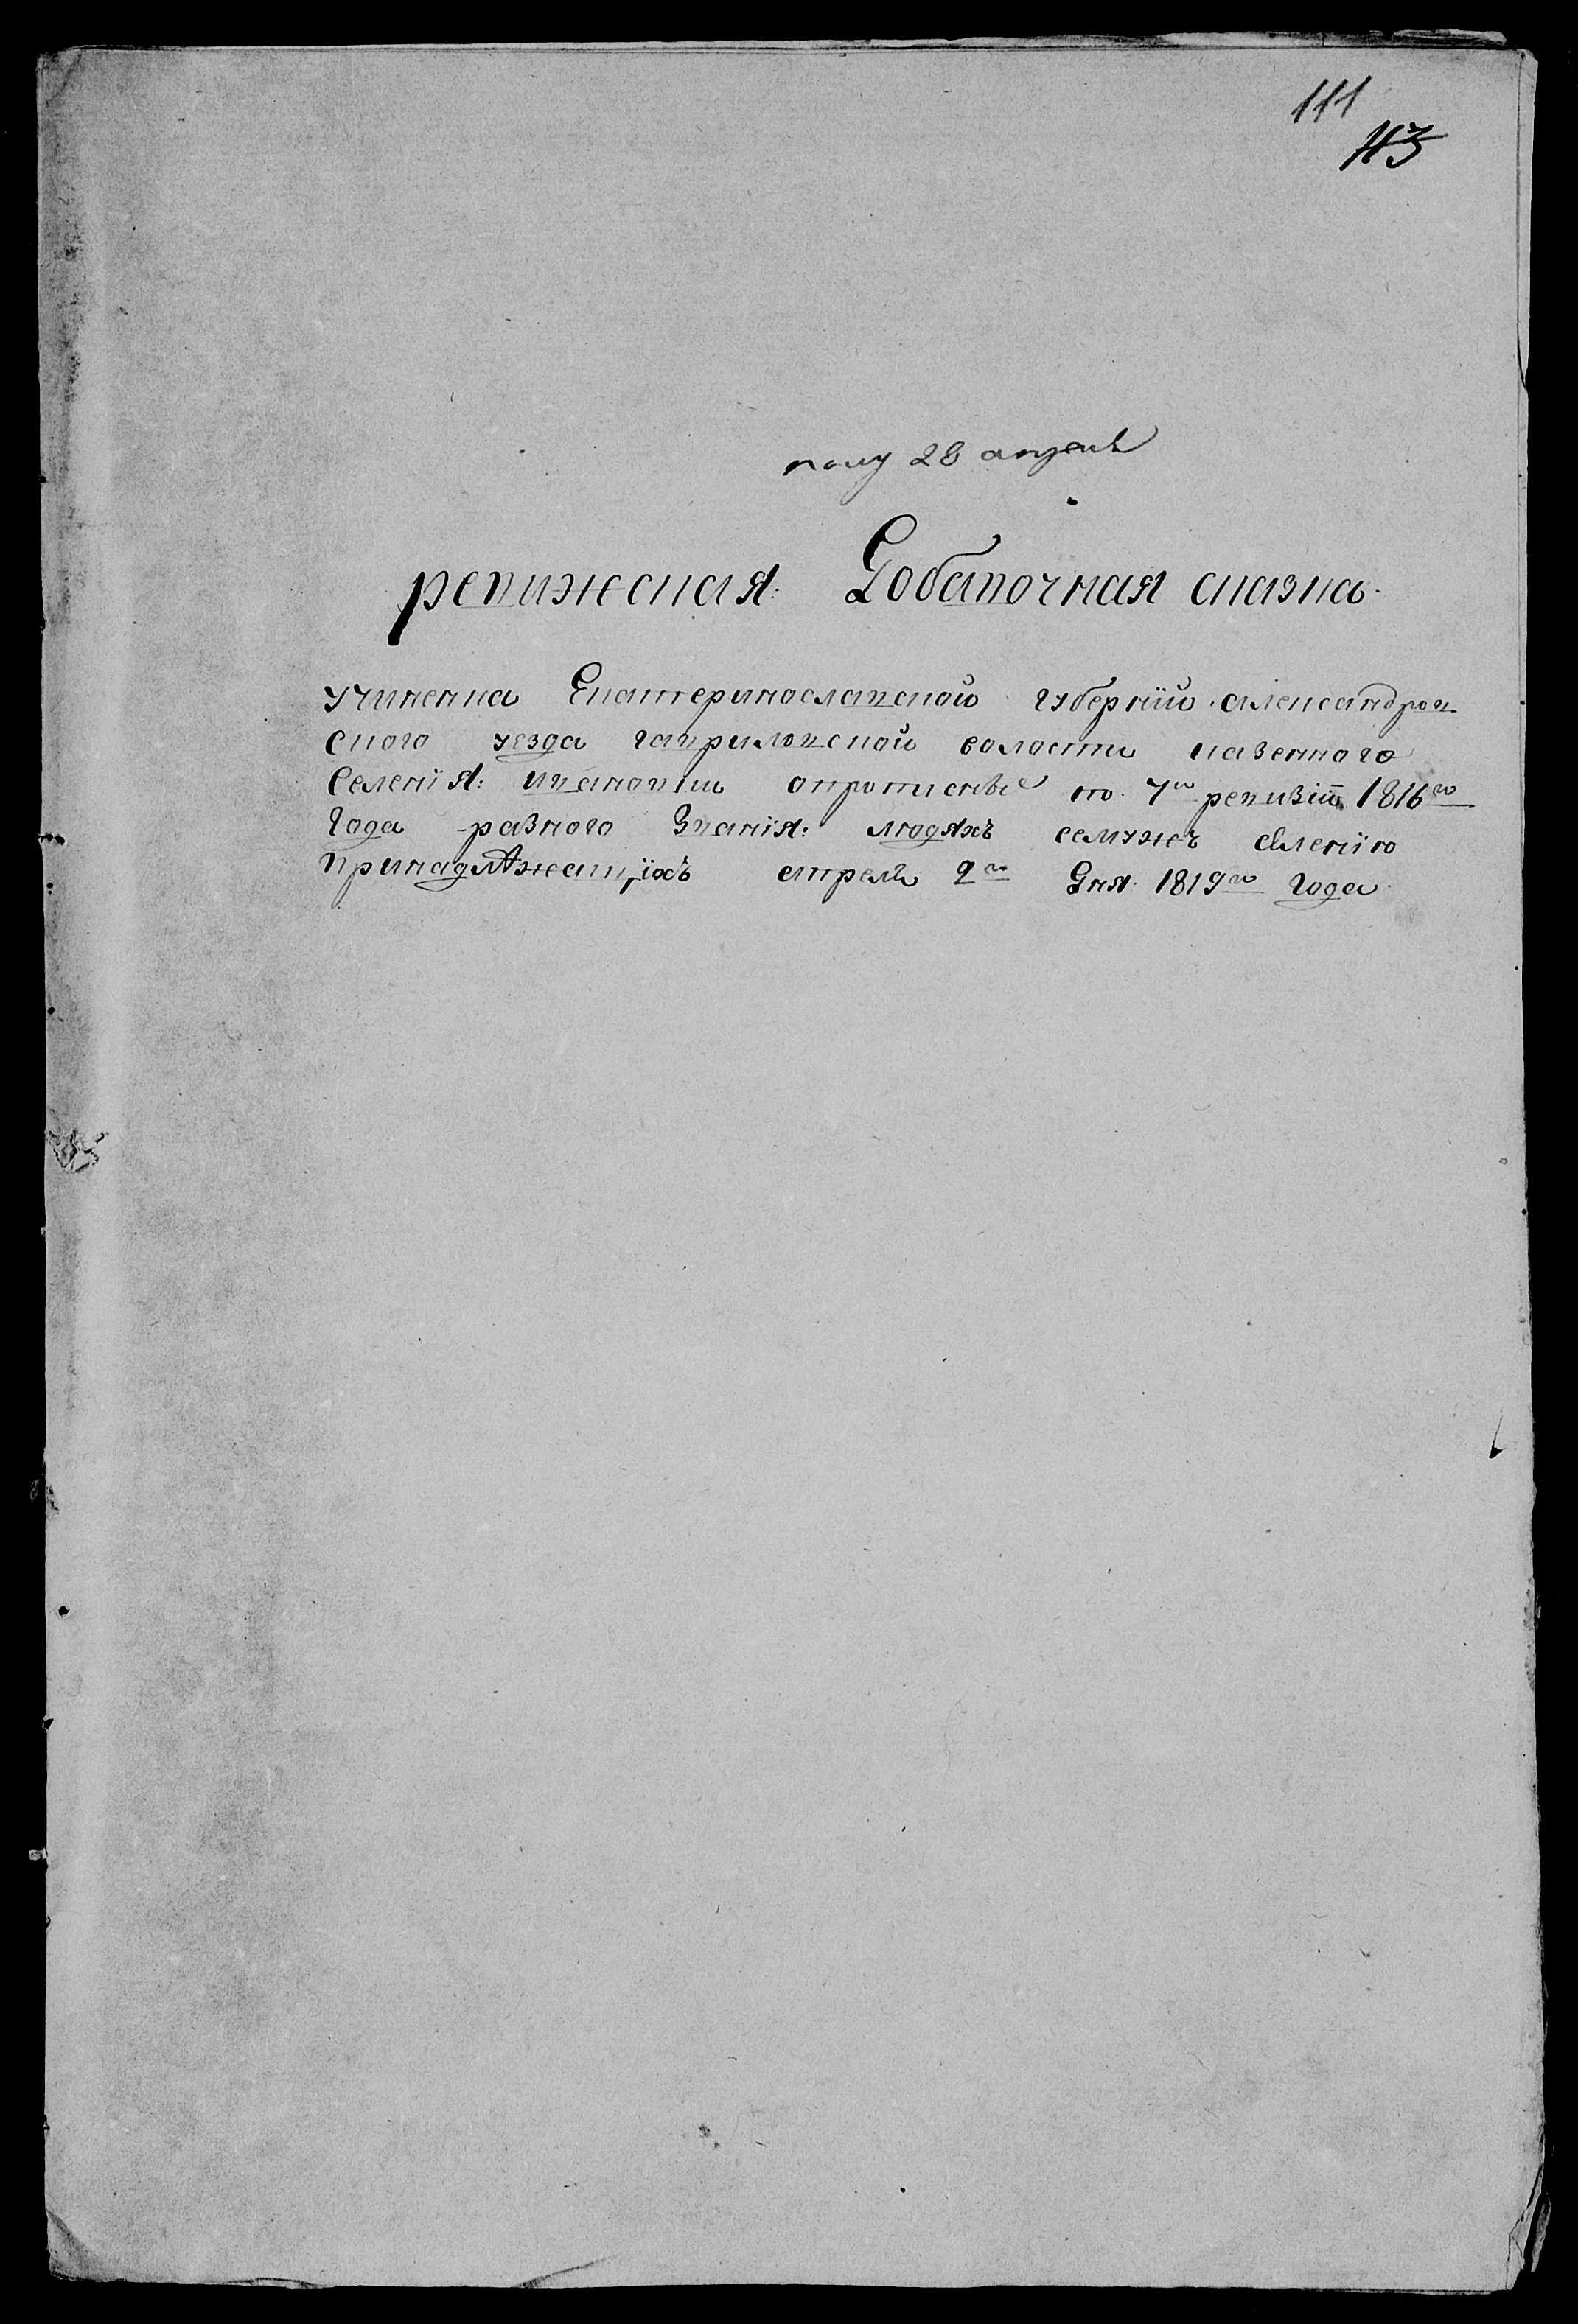 111
113
28 апреля
ревижская: Добавочная сказка.
учиненна Екатеринославской губернїи александров
ского уезда гавриловской воласти казенного
селенїя: ивановки опрописнѣ по. 7й ревизїи 1816го
года разного Званїя: людяхъ семужъ селенїю
принадлѣжащ,їхъ апрелѣ 9го Дня. 1819го года